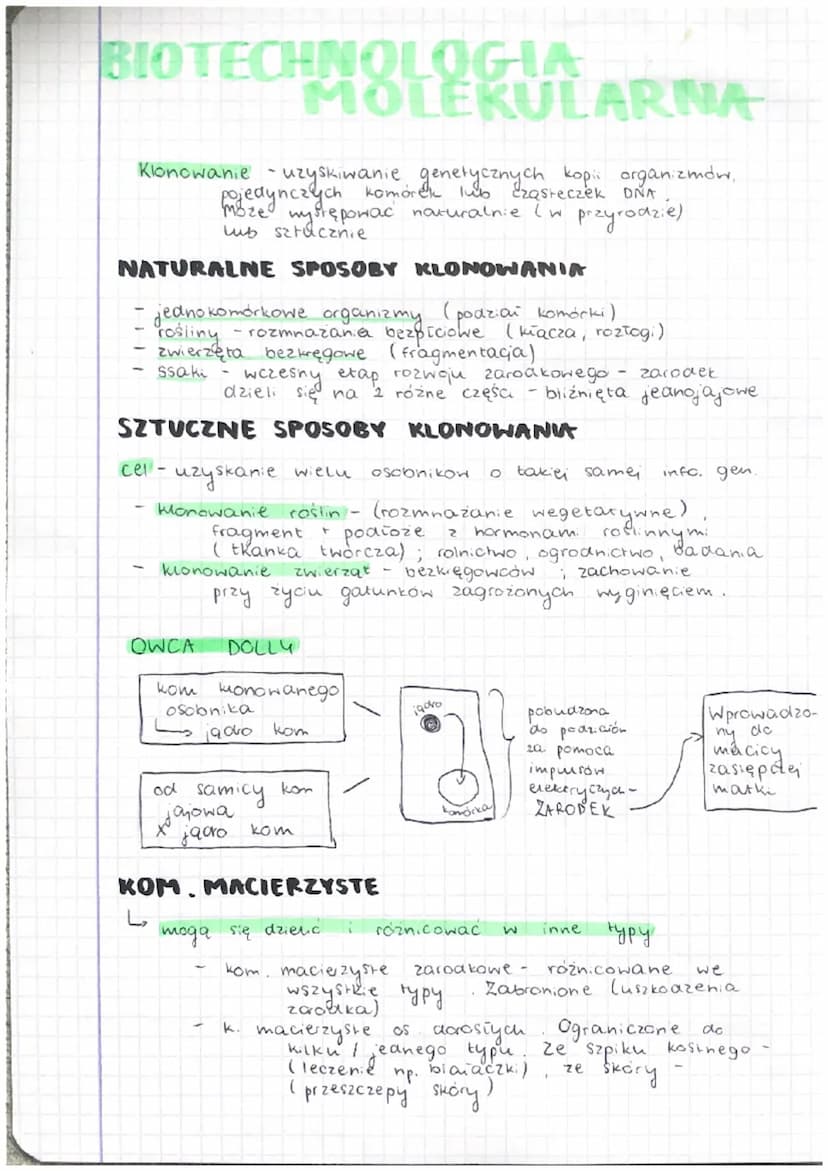 BIOTECHNOLOGIA
MOLEKULARNA
Klonowanie - uzyskiwanie genetycznych kopii organizmów,
pojedynczych komórek lub cząsteczek DNA.
Może występować naturalnie (w przyrodzie)
lub sztucznie
NATURALNE SPOSOBY KLONOWANIA
- jednokomórkowe organizmy (podział komórki)
- rośliny - rozmnażania bezpłciowe (kłącza, rozłogi)
- zwierzęta bezkręgowe (fragmentacja)
- ssaki - wczesny etap rozwoju zarodkowego - zarodek
dzieli się na 2 różne części - bliźnięta jednojajowe
SZTUCZNE SPOSOBY KLONOWANIA
cel - uzyskanie wielu osobników o takiej samej info. gen.
- klonowanie roślin - (rozmnażanie wegetatywne),
fragment + podłoże z hormonami roślinnymi
(tkanka twórcza); rolnictwo, ogrodnictwo, badania
- klonowanie zwierząt - bezkręgowców ; zachowanie
przy życiu gatunków zagrożonych wyginięciem.
OWCA DOLLY
kom klonowanego
osobnika
↳ jądro kom
od samicy kom
jajowa
x jądro kom
jądro
komórka
pobudzona
do podziałów
za pomocą
impulsów
elektrycznych -
ZARODEK
Wprowadzo-
ny do
macicy
zastępczej
matki
KOM. MACIERZYSTE
↳ mogą się dzielić i różnicować w inne typy
- kom. macierzyste zarodkowe - różnicowane we
wszystkie typy. Zabronione (uszkodzenia
zarodka)
- k. macierzyste os. dorosłych. Ograniczone do
kilku / jednego typu. Ze szpiku kostnego -
(leczenie np. białaczki), ze skóry -
(przeszczepy skóry)